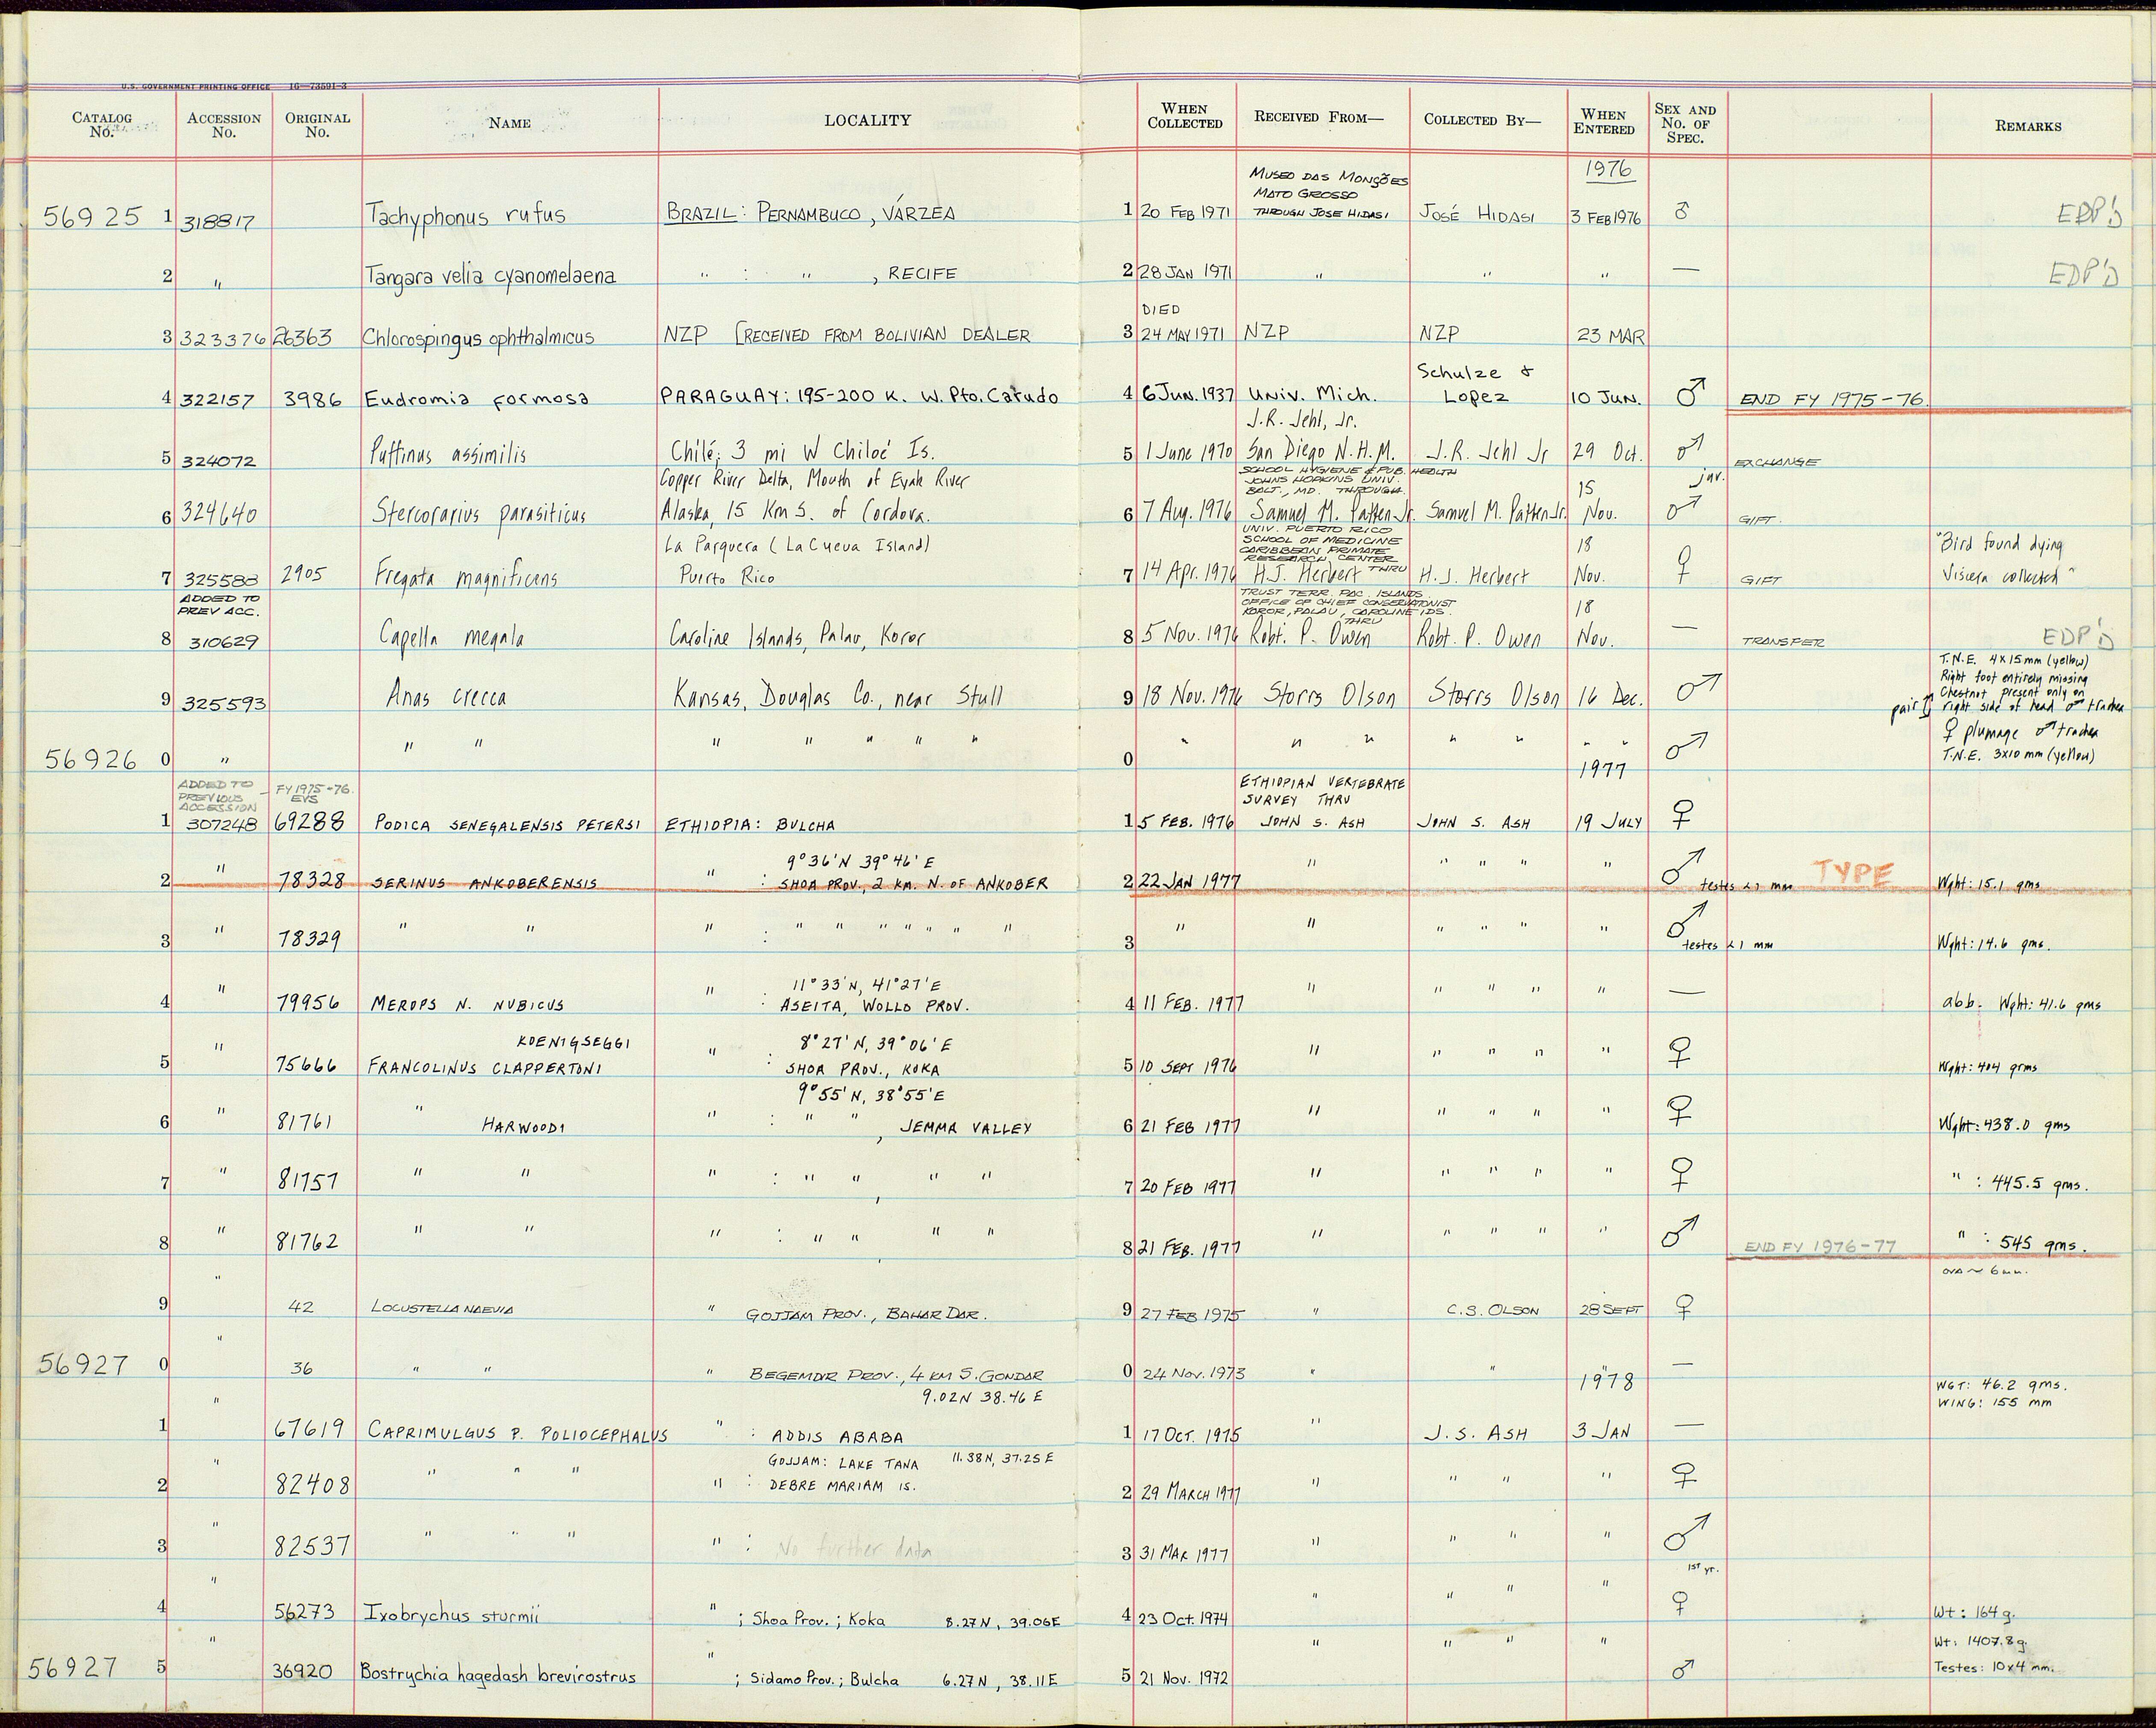 U.S. GOVERNMENT PRINTING OFFICE 16—73591-3
CATALOG No. ACCESSION No. ORIGINAL No. NAME LOCALITY WHEN COLLECTED RECEIVED FROM— COLLECTED BY— WHEN ENTERED SEX AND No. OF SPEC. REMARKS
MUSEO DAS MONÇÕES 1976
MATO GROSSO
56925 1 318817 Tachyphonus rufus BRAZIL: PERNAMBUCO, VÁRZEA 1 20 FEB 1971 THROUGH JOSE HIDASI JOSÉ HIDASI 3 FEB 1976 ♂ EDP'D
2 " Tangara velia cyanomelaena " : " , RECIFE 2 28 JAN 1971 " " " — EDP'D
DIED
3 323376 26363 Chlorospingus ophthalmicus NZP [RECEIVED FROM BOLIVIAN DEALER 3 24 MAY 1971 NZP NZP 23 MAR
Schulze &
4 322157 3986 Eudromia formosa PARAGUAY: 195-200 K. W. Pto. Casado 4 6 Jun. 1937 Univ. Mich. Lopez 10 JUN. ♂ END FY 1975-76.
J.R. Jehl, Jr.
5 324072 Puffinus assimilis Chilé; 3 mi W Chiloé Is. 5 1 June 1970 San Diego N.H.M. J.R. Jehl Jr 29 Oct. ♂ EXCHANGE
Copper River Delta, Mouth of Eyak River SCHOOL HYGIENE & PUB. HEALTH juv.
JOHNS HOPKINS UNIV.
BALT., MD. THROUGH 15
6 324640 Stercorarius parasiticus Alaska, 15 Km S. of Cordova. 6 7 Aug. 1976 Samuel M. Patten Jr. Samuel M. Patten Jr. Nov. ♂ GIFT.
UNIV. PUERTO RICO
La Parguera (La Cueva Island) SCHOOL OF MEDICINE 18 "Bird found dying
CARIBBEAN PRIMATE
RESEARCH CENTER
7 325588 2905 Fregata magnificens Puerto Rico 7 14 Apr. 1976 H.J. Herbert THRU H.J. Herbert Nov. ♀ GIFT Viscera collected"
ADDED TO TRUST TERR. PAC. ISLANDS
PREV ACC. OFFICE OF CHIEF CONSERVATIONIST 18
KOROR, PALAU, CAROLINE IDS.
THRU
8 310629 Capella megala Caroline Islands, Palau, Koror 8 5 Nov. 1976 Robt. P. Owen Robt. P. Owen Nov. — TRANSFER EDP'D
T.N.E. 4x15mm (yellow)
Right foot entirely missing
Chestnut present only on
9 325593 Anas crecca Kansas, Douglas Co., near Stull 9 18 Nov. 1976 Storrs Olson Storrs Olson 16 Dec. ♂ pair right side of head ♂ trachea
♀ plumage ♂ trachea
56926 0 " " " " " " " " 0 " " " " " " " ♂ T.N.E. 3x10 mm (yellow)
1977
ADDED TO PREVIOUS ACCESSION – FY 1975-76. EVS ETHIOPIAN VERTEBRATE
SURVEY THRU
1 307248 69288 PODICA SENEGALENSIS PETERSI ETHIOPIA: BULCHA 1 5 FEB. 1976 JOHN S. ASH JOHN S. ASH 19 JULY ♀
9°36'N 39°46'E
2 " 78328 SERINUS ANKOBERENSIS " : SHOA PROV., 2 KM. N. OF ANKOBER 2 22 JAN 1977 " " " " " ♂ testes <1 mm TYPE Wght: 15.1 gms
3 " 78329 " " " : " " " " " " " 3 " " " " " " ♂ testes <1 mm Wght: 14.6 gms.
11°33'N, 41°27'E
4 " 79956 MEROPS N. NUBICUS " : ASEITA, WOLLO PROV. 4 11 FEB. 1977 " " " " " — abb. Wght: 41.6 gms
KOENIGSEGGI 8°27'N, 39°06'E
5 " 75666 FRANCOLINUS CLAPPERTONI " : SHOA PROV., KOKA 5 10 SEPT 1976 " " " " " ♀ Wght: 404 grms
9°55'N, 38°55'E
6 " 81761 " HARWOODI " : " " , JEMMA VALLEY 6 21 FEB 1977 " " " " " ♀ Wght: 438.0 gms
7 " 81757 " " " : " " , " " 7 20 FEB 1977 " " " " " ♀ " : 445.5 gms.
8 " 81762 " " " : " " , " " 8 21 FEB. 1977 " " " " " ♂ END FY 1976-77 " : 545 gms.
ova ~ 6mm.
9 " 42 LOCUSTELLA NAEVIA " GOJJAM PROV., BAHAR DAR. 9 27 FEB 1975 " C.S. OLSON 28 SEPT ♀
56927 0 " 36 " " " BEGEMDIR PROV., 4 KM S. GONDAR 0 24 NOV. 1973 " " " —
9.02N 38.46 E 1978 WGT: 46.2 gms.
WING: 155 mm
1 " 67619 CAPRIMULGUS P. POLIOCEPHALUS " : ADDIS ABABA 1 17 OCT. 1975 " J.S. ASH 3 JAN —
GOJJAM: LAKE TANA 11.38N, 37.25E
2 " 82408 " " " " : DEBRE MARIAM IS. 2 29 MARCH 1977 " " " " ♀
3 " 82537 " " " " : No further data 3 31 MAR 1977 " " " " ♂
1ST yr.
4 " 56273 Ixobrychus sturmii " ; Shoa Prov.; Koka 8.27N, 39.06E 4 23 Oct. 1974 " " " " ♀ Wt: 164 g.
Wt: 1407.8g.
56927 5 " 36920 Bostrychia hagedash brevirostrus " ; Sidamo Prov.; Bulcha 6.27N, 38.11E 5 21 Nov. 1972 " " " " ♂ Testes: 10x4 mm.